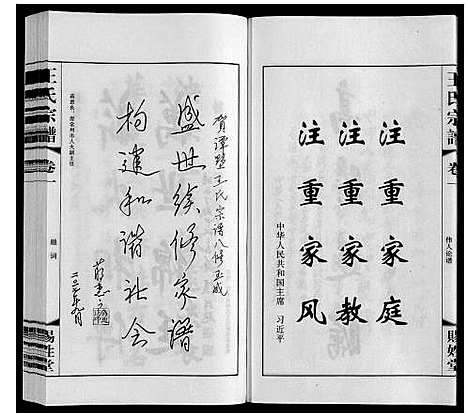 王氏宗譜
卷一
伟人论谱
賜姓堂
注重家庭
注重家教
注重家风
中华人民共和国主席 习近平
贺谭墅王氏宗谱八修玉成
盛世续修家谱
构建和谐社会
王氏宗譜
卷一
题词
賜姓堂